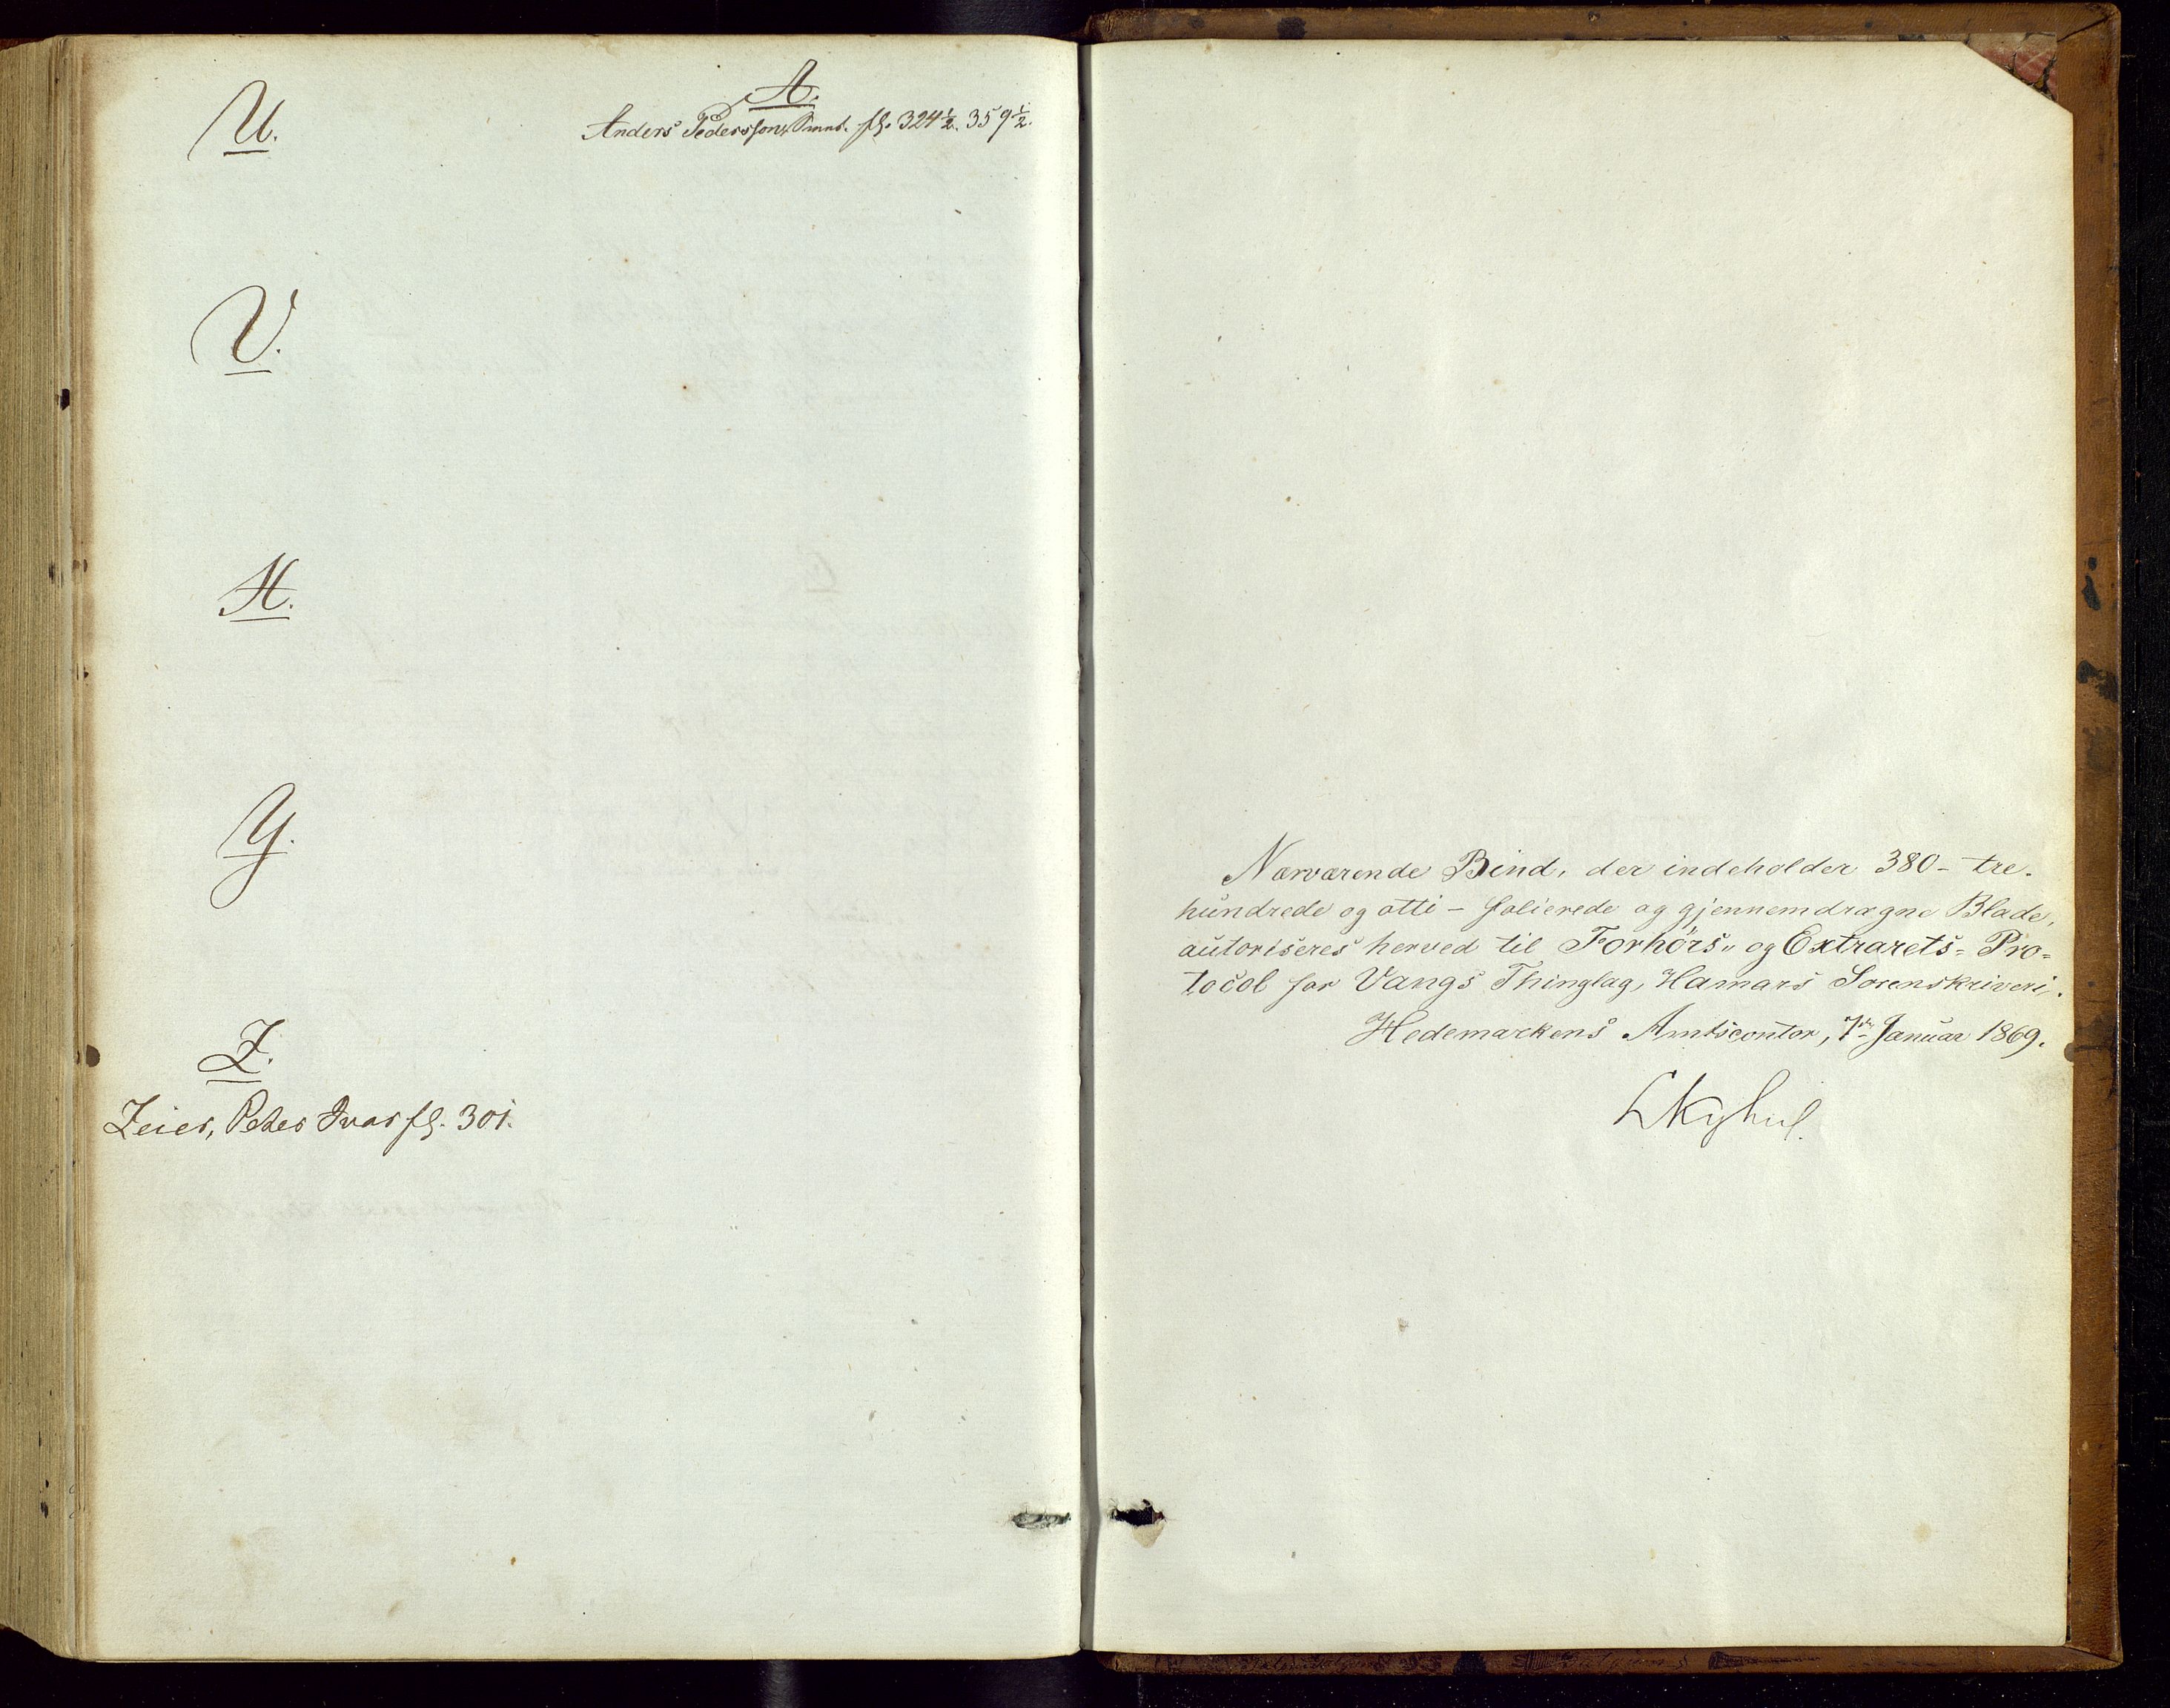 U.
V.
Y.
Z.
Zeier, Peter Ivar fl. 301.
A.
Anders Pedersson, fl. 324 1/2. 359 1/2.
Nærværende Bind, der indeholder 380 - tre-
hundrede og otti - folierede og gjennemdragne Blade,
autoriseres herved til Forhørs- og Extrarets- Pro-
tocol for Vangs Thinglag, Hamars Sorenskriveri.
Hedemarkens Amtscontor, 7de Januar 1869.